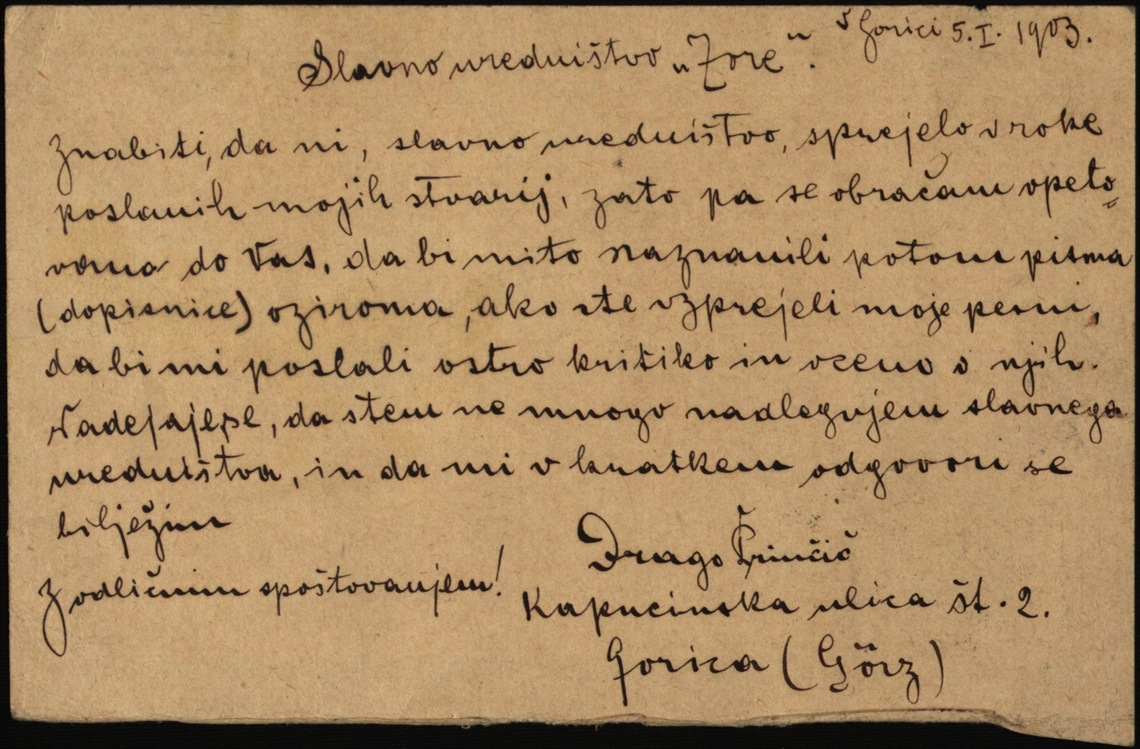 v Gorici 5.I. 1903.
Slavno uredništvo „Zore“.
Znabiti, da ni, slavno uredništvo, sprejelo v roke
poslanih mojih stvarij, zato pa se obračam opeto=
vano do Vas, da bi mi to naznanili potom pisma
(dopisnice) oziroma, ako ste vzprejeli moje pesmi,
da bi mi poslali ostro kritiko in oceno o njih.
Nadejaje se, da stem ne mnogo nadlegujem slavnega
uredništva, in da mi v kratkem odgovori se
bilježim
Z odličnim spoštovanjem!
Drago
Kapucinska ulica št. 2.
Gorica (Görz)